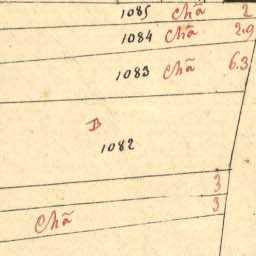 1085 Chã 2
1084 Chã 2.9
1083 Chã 6.3
B
1082
3
Chã 3